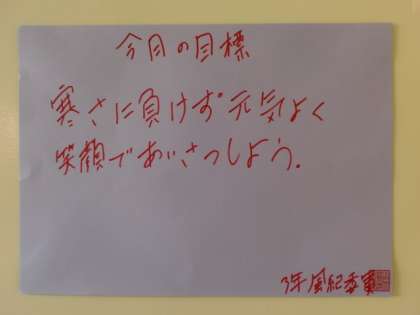 今月の目標
寒さに負けず元気よく
笑顔であいさつしよう.
3年風紀委員